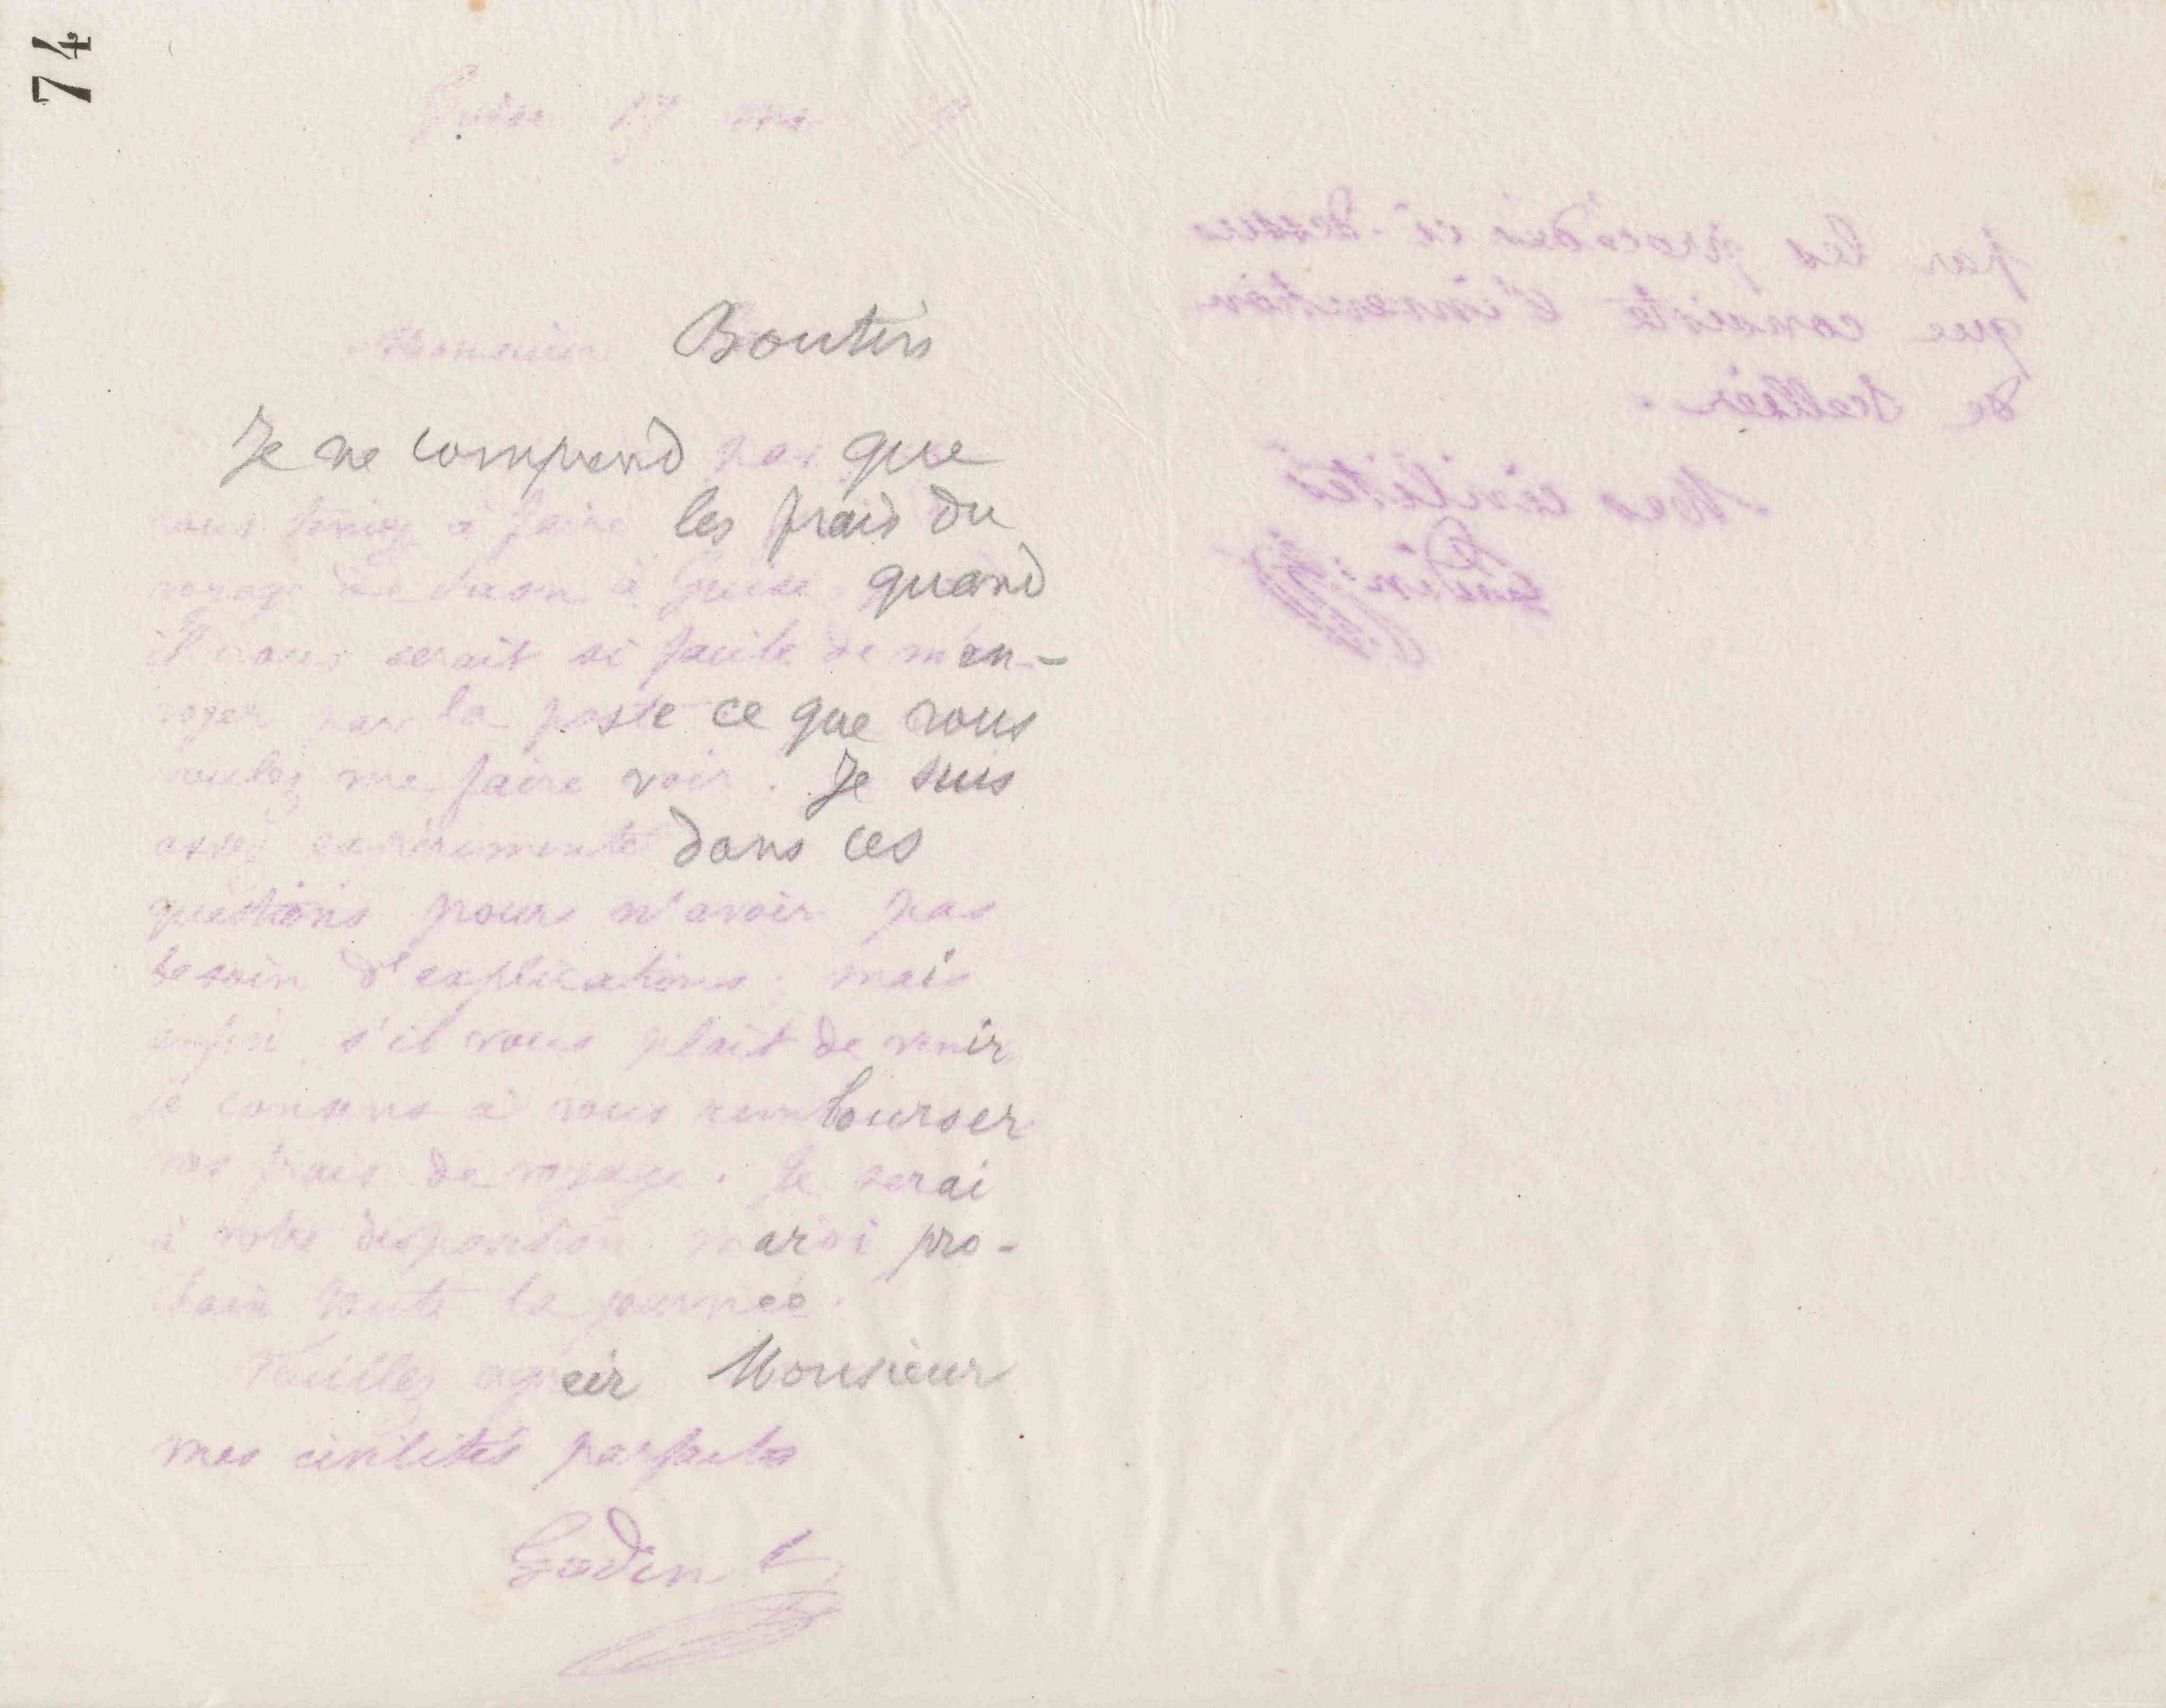 74
Guise 17
Monsieur Boutin
Je ne comprend pas que
vous teniez à faire les frais du
voyage de à Guise, quand
il vous serait si facile de m'en-
voyer par la poste ce que vous
voulez me faire voir. Je suis
assez expérimenté dans ces
questions pour n'avoir pas
besoin d'explications; mais
enfin s'il vous plait de venir
je consens à vous rembourser
vos frais de voyage. Je serai
à votre disposition mardi pro-
chain toute la journée.
Veuillez agréer Monsieur
mes civilités parfaites
Godin
par les procédés ci-dessus
que consiste l'invention
de
Mes civilités
Godin